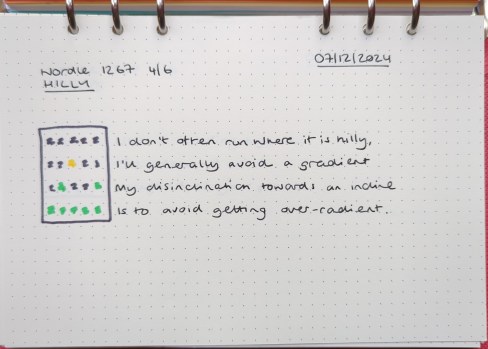 07/12/2024
Wordle 1267 4/6
HILLY
I don't often run where it is hilly,
I'll generally avoid a gradient
My disinclination towards an incline
is to avoid getting over-radient.